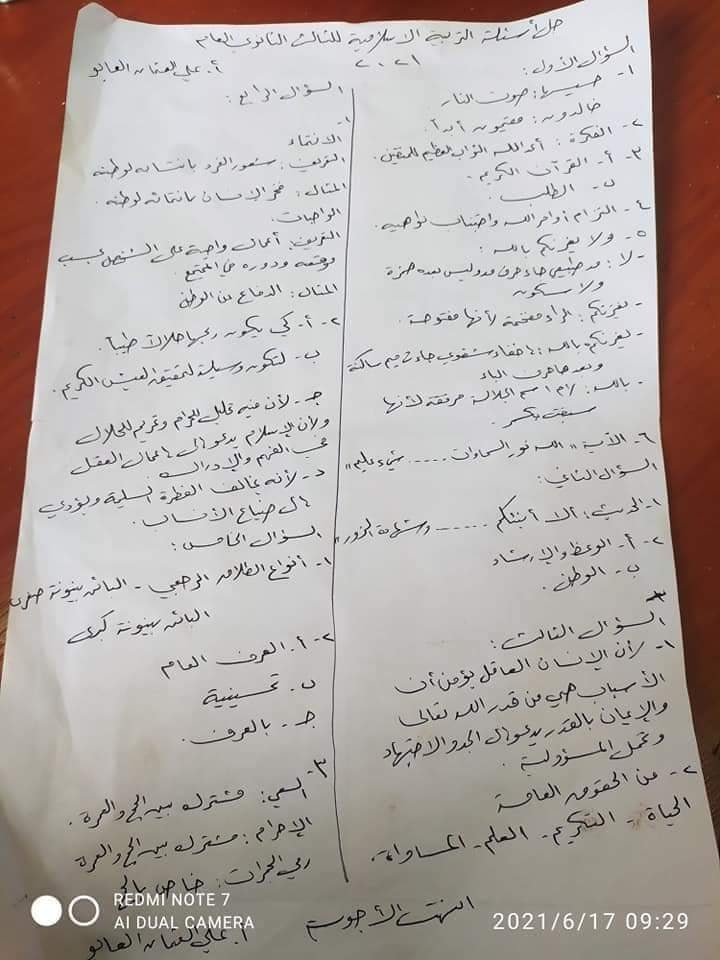 حل أسئلة التربية الاسلامية للثالث الثانوي العام
٢٠٢١
أ. علي العثمان العالو
السؤال الأول:
١- حسيسها: صوت النار
خالدون: مقيمون أبداً.
٢- الفكرة: أعد الله الثواب العظيم للمتقين.
٣- أ- القرآن الكريم.
ب- الطلب.
٤- التزام أوامر الله واجتناب نواهيه.
٥- ولا يغرنكم بالله:
- لا: مد طبيعي جاء حرف مد وليس بعده همزة
ولا سكون
- يغرنكم: الراء مفخمة لأنها مفتوحة.
- يغرنكم بالله: إخفاء شفوي جاءت ميم ساكنة
وبعدها حرف الباء
- بالله: لام اسم الجلالة مرققة لأنها
سبقت بكسر.
٦- الآية "الله نور السماوات ..... شيء عليم"
السؤال الثاني:
١- الحديث: ألا أنبئكم ...... وشهادة الزور"
٢- أ- الوعظ والإرشاد
ب- الوطن.
السؤال الثالث:
١- لأن الإنسان العاقل يؤمن أن
الأسباب هي من قدر الله تعالى
والإيمان بالقدر يدعو إلى الجد والاجتهاد
وتحمل المسؤولية.
٢- من الحقوق العامة
الحياة - التكريم - العلم - المساواة.
السؤال الرابع:
١-
الانتماء
التعريف: شعور الفرد بانتسابه لوطنه
المثال: فخر الإنسان بانتمائه لوطنه.
الواجبات:
التعريف: أعمال واجبة على الشخص بحسب
موقعه ودوره في المجتمع.
المثال: الدفاع عن الوطن
٢- أ- كي يكون ربحها حلالاً طيباً.
ب- لتكون وسيلة لتحقيق العيش الكريم.
جـ- لأن فيه تحليل للحرام وتحريم للحلال
ولأن الإسلام يدعو إلى إعمال العقل
في الفهم والإدراك.
د- لأنه يخالف الفطرة السليمة ويؤدي
إلى ضياع الأنساب.
السؤال الخامس:
١- أنواع الطلاق الرجعي - البائن بينونة صغرى
البائن بينونة كبرى
٢- أ. العرف العام
ب. تحسينية
جـ- بالعرف.
٣-
السعي: مشترك بين الحج والعمرة.
الإحرام: مشترك بين الحج والعمرة
رمي الجمرات: خاص بالحج
انتهت الأجوبة
أ. علي العثمان العالو
REDMI NOTE 7
AI DUAL CAMERA
2021/6/17 09:29